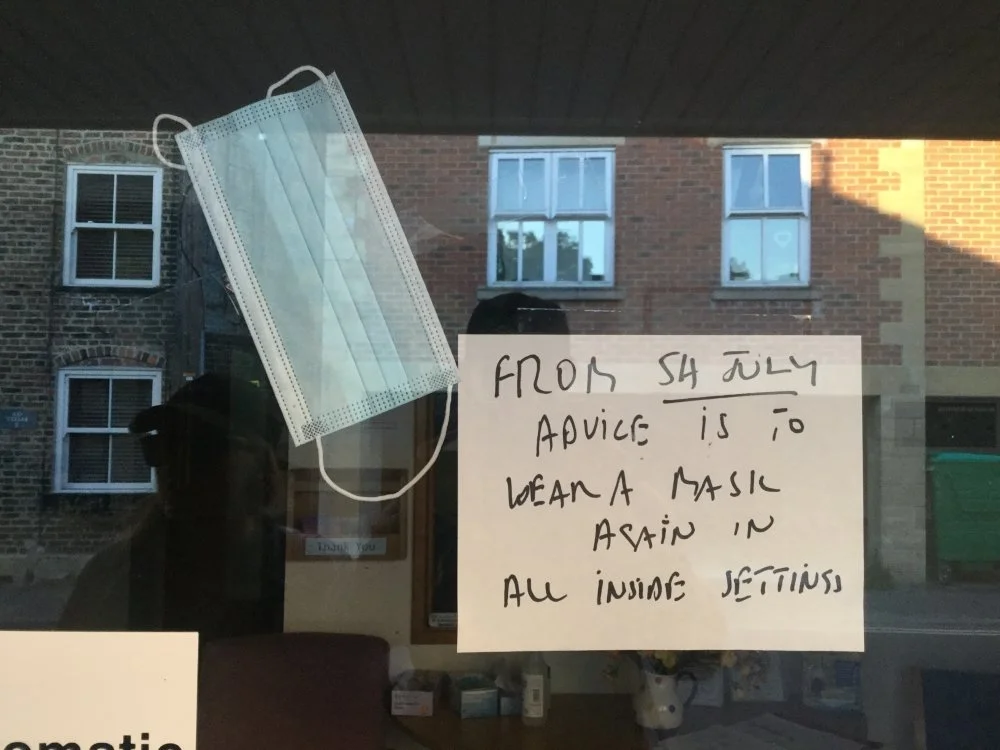 FROM 5H JULY
ADVICE IS TO
WEAR A MASK
AGAIN IN
ALL INSIDE SETTINGS
Thank You
omatic